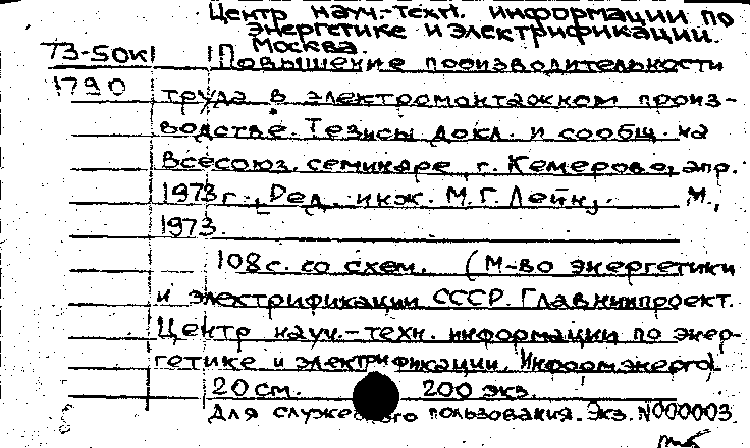 Центр науч.-техн. информации по
энергетике и электрификации.
Москва.
73-50к1 Повышение производительности
1790 труда в электромонтажном произ-
водстве. Тезисы докл. и сообщ. на
Всесоюз. семинаре, г. Кемерово, апр.
1973 г., [Ред. инж. М.Г. Лейн]. М.,
1973.
108с. со схем. (М-во энергетики
и электрификации СССР. Главниипроект.
Центр науч.-техн. информации по энер-
гетике и электрификации. Информэнерго).
20 см. 200 экз.
Для служебного пользования. Экз. N000003